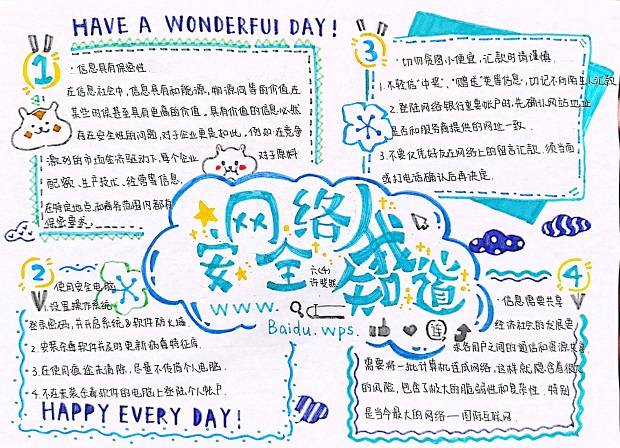 HAVE A WONDERFUL DAY!
1
·信息具有保密性.
在信息社会中,信息具有和能源,物源同等的价值,在
某些时候甚至具有更高的价值。具有价值的信息必然
存在安全性的问题,对于企业更是如此,例如:在竞争
激烈的市场经济驱动下,每个企业 对于原料
配额、生产技术、经营等信息,
在特定地点和商务范围内都有
保密要求.
3
·切切贪图小便宜,汇款时请谨慎.
1.不轻信"中奖","赠送"类等信息,切记不向陌生人汇款
2.登陆网络银行重要帐户时,先确认网站地址
是否和服务商提供的网址一致.
3.不要仅凭好友在网络上的留言汇款,须当面
或打电话确认后再决定.
网络
安全 我
知道
六(4)
www.
Baidu.wps.
2
使用安全电脑
1.设置操作系统
登录密码,并开启系统及软件防火墙.
2.安装杀毒软件并及时更新病毒特征库.
3.在使用痕迹未清除,尽量不使用个人电脑.
4.不在未装杀毒软件的电脑上登陆个人帐户.
HAPPY EVERY DAY!
4
·信息需要共享
经济社会的发展要
求各用户之间的通信和资源共享.
需要将一批计算机连成网络,这样就隐含着很大
的风险,包含了极大的脆弱性和复杂性.特别
是当今最大的网络——国际互联网.